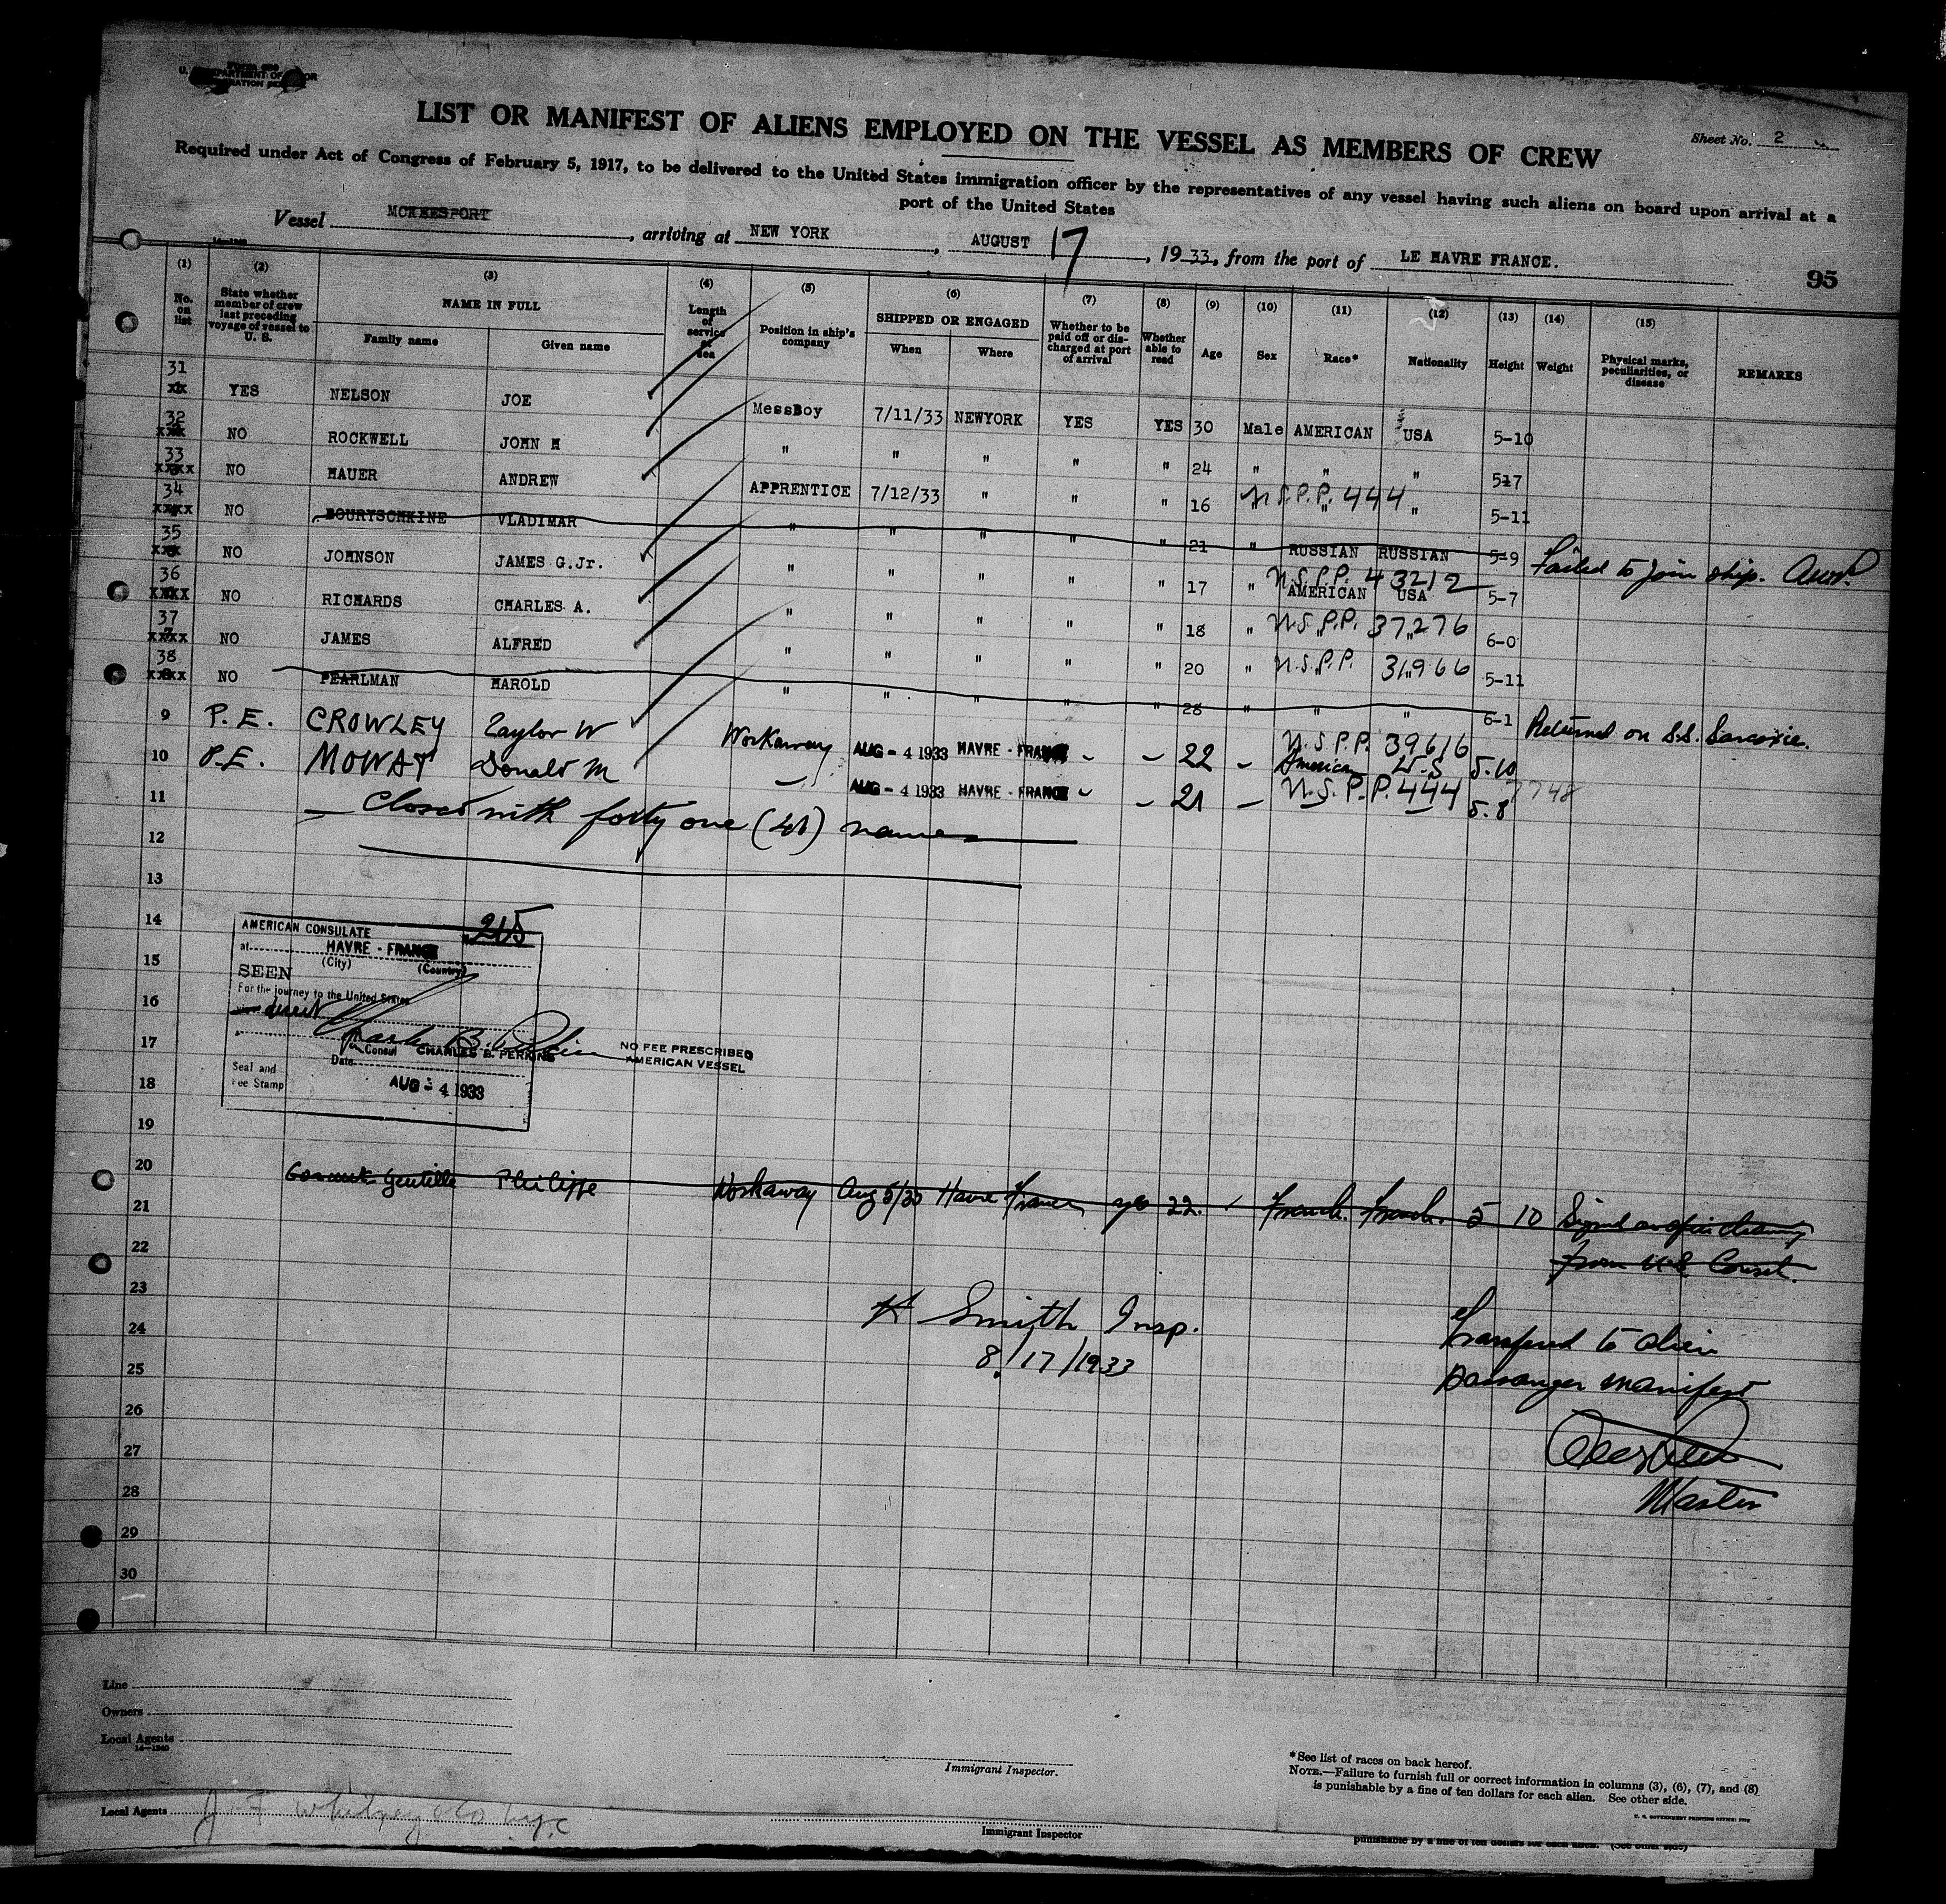 LIST OR MANIFEST OF ALIENS EMPLOYED ON THE VESSEL AS MEMBERS OF CREW
Sheet No. 2
Required under Act of Congress of February 5, 1917, to be delivered to the United States immigration officer by the representatives of any vessel having such aliens on board upon arrival at a
port of the United States
Vessel MCKEESPORT, arriving at NEW YORK, AUGUST 17, 1933, from the port of LE HAVRE FRANCE.
95
(1) (2) (3) (4) (5) (6) (7) (8) (9) (10) (11) (12) (13) (14) (15)
No. on list
State whether member of crew last preceding voyage of vessel to U. S.
NAME IN FULL
Family name Given name
Length of service at sea
Position in ship's company
SHIPPED OR ENGAGED
When Where
Whether to be paid off or discharged at port of arrival
Whether able to read
Age Sex Race* Nationality Height Weight
Physical marks, peculiarities, or disease
REMARKS
31 YES NELSON JOE MessBoy 7/11/33 NEWYORK YES YES 30 Male AMERICAN USA 5-10
32 NO ROCKWELL JOHN H " " " " " 24 " " "
33 NO HAUER ANDREW APPRENTICE 7/12/33 " " " 16 " U.S.P.P. 444 " 5-11
34 NO BOURTSCHKINE VLADIMAR " " " " " 21 " RUSSIAN RUSSIAN 5-9 Failed to join ship.
35 NO JOHNSON JAMES G.Jr. " " " " " 17 " U.S.P.P. 43212 AMERICAN USA 5-7
36 NO RICHARDS CHARLES A. " " " " " 18 " U.S.P.P. 37276 6-0
37 NO JAMES ALFRED " " " " " 20 " U.S.P.P. 31966 5-11
38 NO PEARLMAN HAROLD " " " " " 28 " " " 6-1 Returned on S.S. Sarcoxie.
9 P.E. CROWLEY Taylor W Workaway AUG - 4 1933 HAVRE - FRANCE - - 22 - U.S.P.P. 39616 American U.S 5-10
10 P.E. MOWAT Donald M - AUG - 4 1933 HAVRE - FRANCE - - 21 - U.S.P.P. 444 7748 5-8
11 Closed with forty one (41) names
12
13
14
15
16
17
18
19
20
21
22
23
24
25
26
27
28
29
30
AMERICAN CONSULATE 215
at HAVRE - FRANCE
(City) (Country)
SEEN
For the journey to the United States
direct
Consul CHARLES B. PERKINS
Date
Seal and
Fee Stamp
AUG - 4 1933
NO FEE PRESCRIBED
AMERICAN VESSEL
Gentille Philippe Workaway Aug 5/30 Havre France yes 22. French. French. 5 10
from U.S. Consul.
H Smith Insp.
8/17/1933
Transferred to alien
passenger manifest
Master
Line
Owners
Local Agents
14-1240
Immigrant Inspector.
*See list of races on back hereof.
NOTE.—Failure to furnish full or correct information in columns (3), (6), (7), and (8)
is punishable by a fine of ten dollars for each alien. See other side.
U. S. GOVERNMENT PRINTING OFFICE
Local Agents J F Whitney & Co NYC
Immigrant Inspector
punishable by a fine of ten dollars for each alien. (See other side)